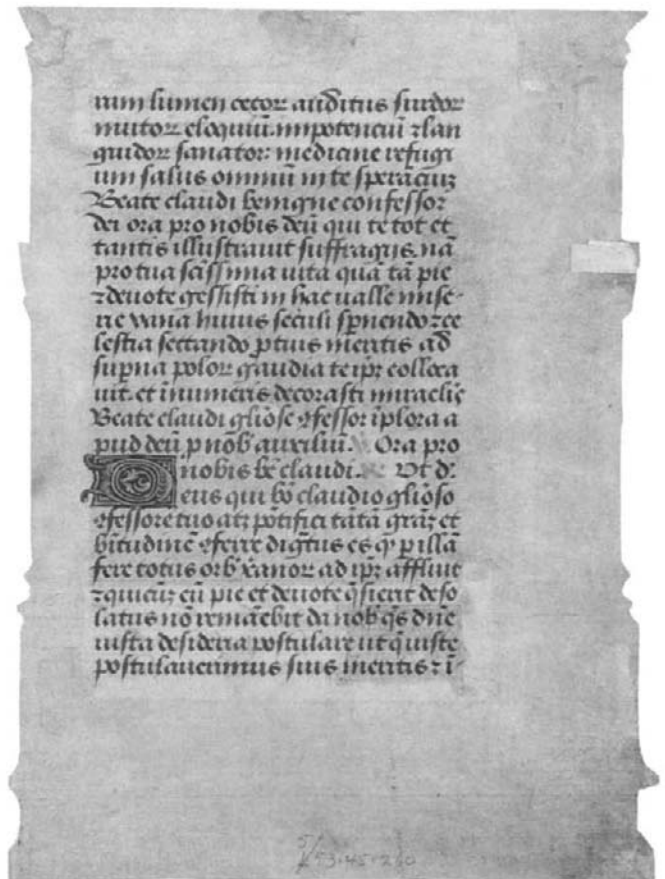 rum lumen cecoꝝ auditus surdoꝝ
mutoꝝ eloquiū. impotenciū ⁊ lan
guidoꝝ sanatoꝛ: medicine refugi
um salus omniū in te sperāciuꝫ
Beate claudi benigne confessor
dei ora pro nobis deū qui te tot et
tantis illustrauit suffragijs. nā
pro tua scissima uita quā tā pie
⁊ deuote gessisti in hac ualle mise-
rie vana huius seculi spnendo ⁊ ce
lestia sectando ptuis meritis ad
supna poloꝝ gaudia te ipē colloca
uit. et inumeris decorasti miraclis
Beate claudi gliōse ꝯfessor īplora a
pud deū p nob̄ auxiliū. Ora pro
nobis bē claudi. Vt d:
Deus qui bō claudio gliōso
ꝯfessore tuo atꝫ pōtifici tātā grāꝫ et
bītudinē ꝯferre digtus es qꝫ p illā
fere totus orb̄ xānoꝝ ad ipꝫ affluit
⁊ quicūꝫ eū pie et deuote q̄sierit deso
latus nō remāebit da nob̄ q̄s dn̄e
iusta desideria postulare ut q̄ iuste
postulauerimus suis meritis ⁊ ī-
53.45.260